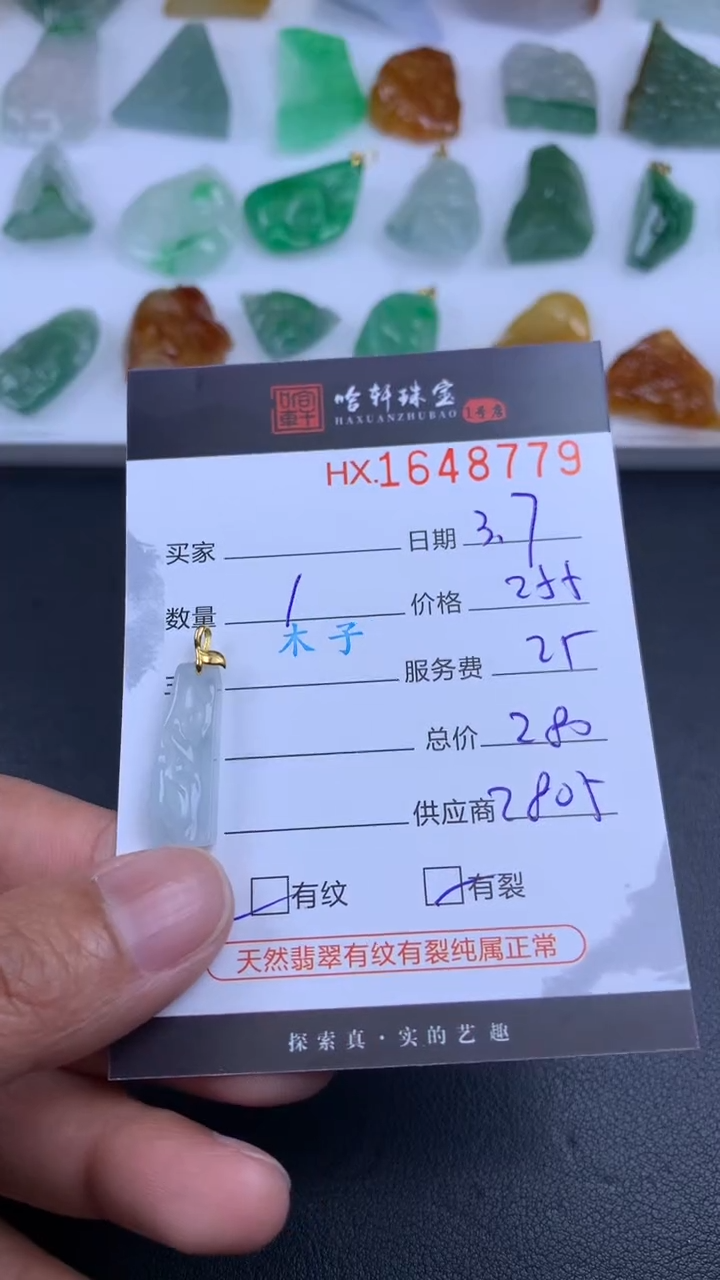 哈轩珠宝
HAXUANZHUBAO 1号店
HX.1648779
买家 日期 3.7
数量 1 价格 255
木子
服务费 25
总价 280
供应商 2805
有纹 有裂
天然翡翠有纹有裂纯属正常
探索真·实的艺趣